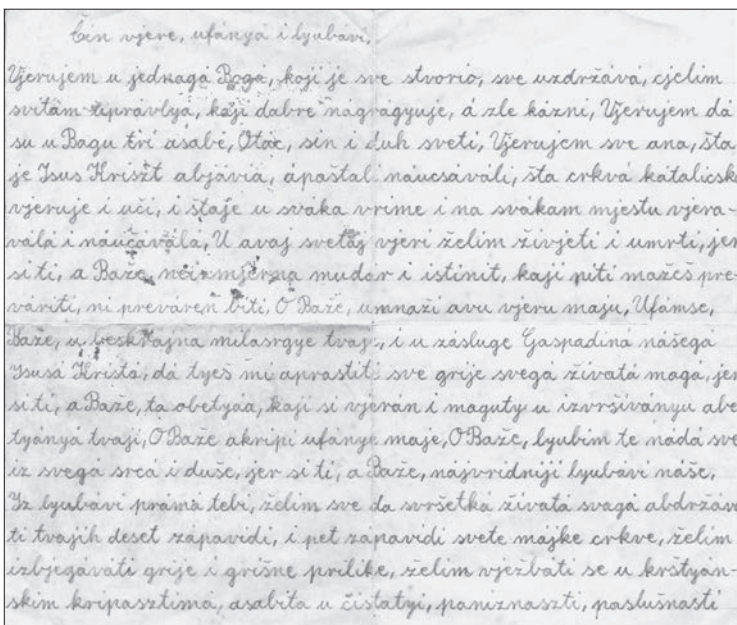 Čin vjere, ufánya i lyubávi,
Vjerujem u jednagá Bogá, koji je sve stvorio, sve uzdržává, cjelim
svitám uprávlya, káji dabre nágrágyuje, á zle kázni, Vjerujem dá
su u Bagu tri asabe, Otac, sin i duh sveti, Vjerujem sve ana, šta
je Isus Kriszt abjávia, ápaštal náucsáváli, šta crkvá kátalicská
vjeruje i uči, i štaje u sváka vrime i na svákam mjestu vjera-
válá i náučáválá, U avaj svetaj vjeri želim živjeti i umrti, jer
si ti, a Baže, neizmjerna mudar i istinit, kaji niti mažeš pre-
váriti, ni preváren biti, O Baže, umnaži avu vjeru maju, Ufámse,
Baže, u beskrajna milasrgye tvaje, i u zásluge Gaspadiná nášegá
Isusá Kristá, dá tyeš mi aprastiti sve grije svegá živatá magá, jer
si ti, a Baže, ta obetyáa, kaji si vjerán i maguty u izvršiványu abe
tyányá tvaji, O Baže akripi ufánye maje, O Baže, lyubim te nádá sve
iz svegá srcá i duše, jer si ti, a Baže, nájvridniji lyubávi náše,
Iz lyubávi prámá tebi, želim sve da svršetká živatá svagá abdržáva
ti tvajih deset zápavidi, i pet zapavidi svete májke crkve, želim
izbjegáváti grije i grišne prilike, želim vježbáti se u krštyán-
skim kripasztimá, asabita u čistatyi, paniznaszti, paslušnasti